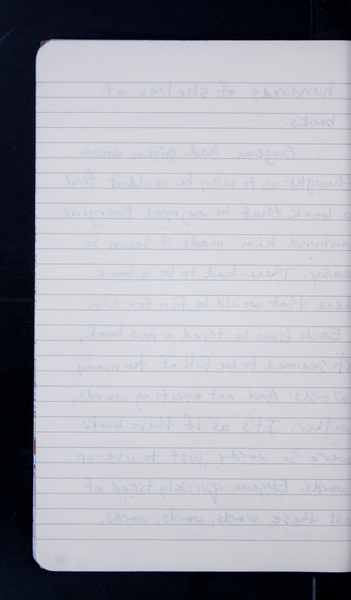 hundreds of shelves of
books.
Eugene had given much
thought as to why he couldn't find
a book that he enjoyed. Everyone
around him made it seem so
easy. There had to be a book
here that would be fun for him.
Each time he tried a new book,
it seemed to be full of too many
words. And not exciting words,
either. It's as if these books
were so wordy just to use-up
words. Eugene quickly tired of
all these words, words, words.